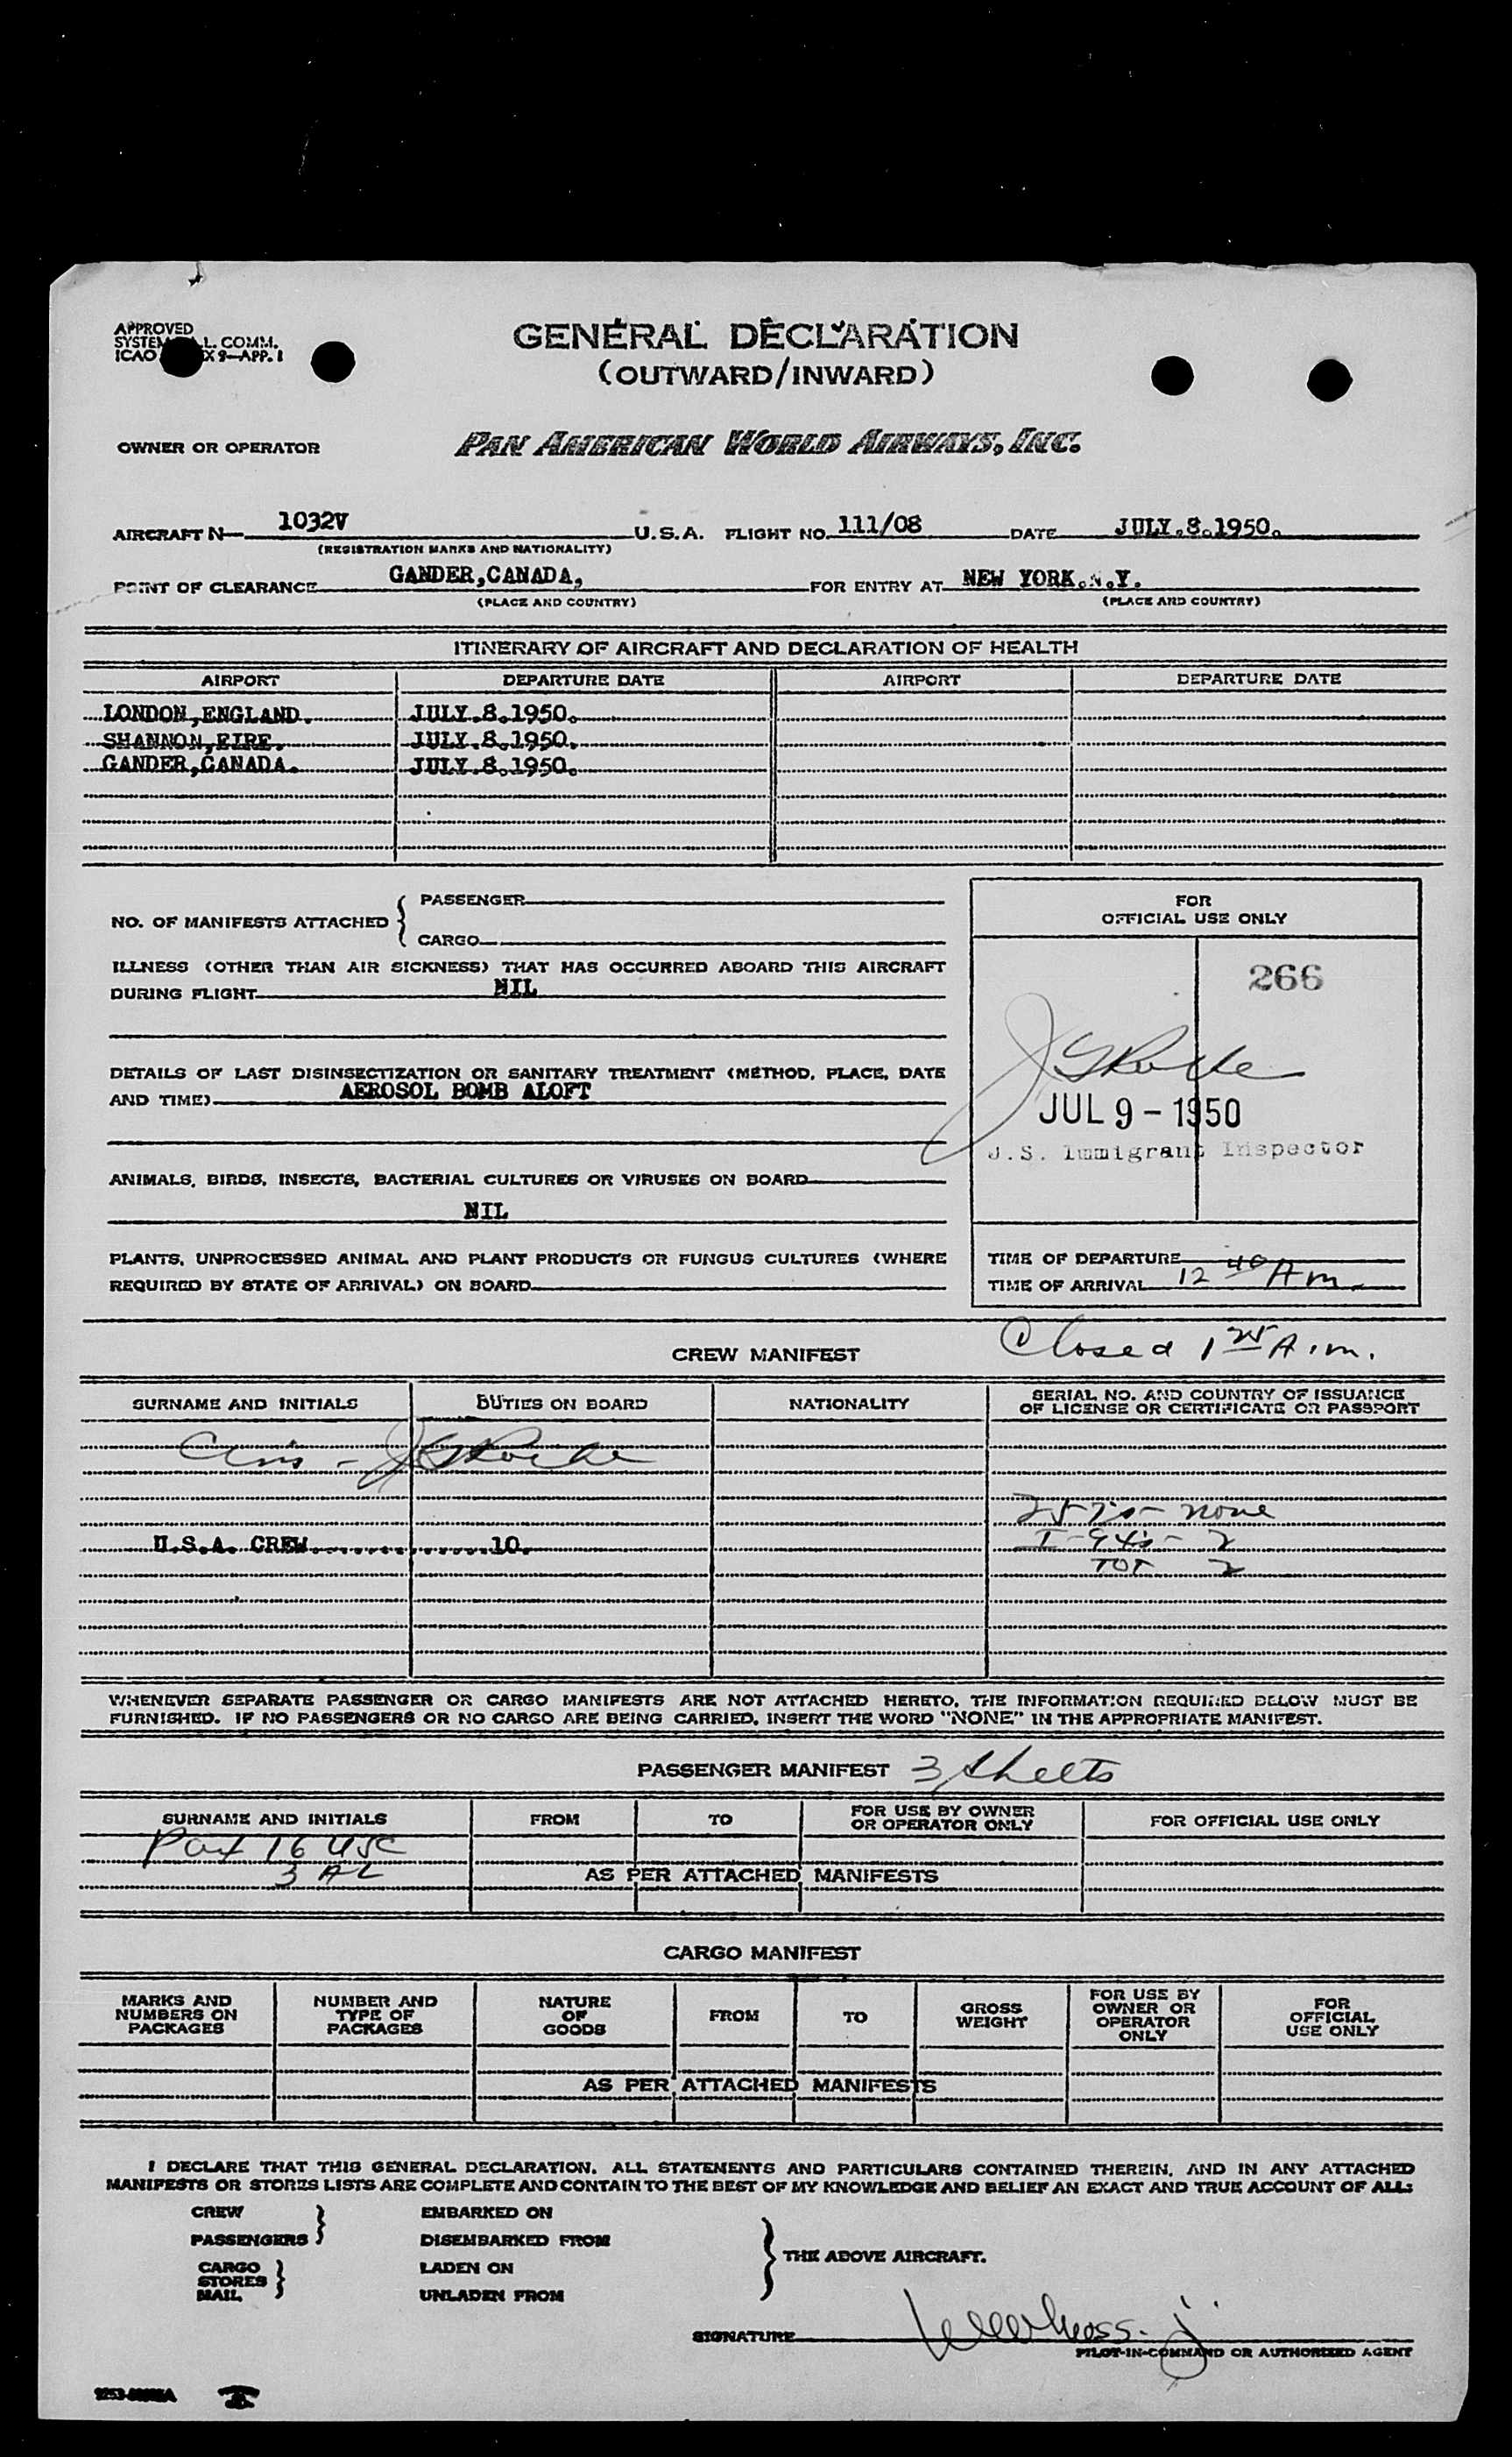 APPROVED
SYSTEM L. COMM.
ICAO X 9—APP. 1
GENERAL DECLARATION
(OUTWARD/INWARD)
OWNER OR OPERATOR PAN AMERICAN WORLD AIRWAYS, INC.
AIRCRAFT N— 1032V U.S.A. FLIGHT NO. 111/08 DATE JULY.8.1950.
(REGISTRATION MARKS AND NATIONALITY)
POINT OF CLEARANCE GANDER,CANADA, FOR ENTRY AT NEW YORK.N.Y.
(PLACE AND COUNTRY) (PLACE AND COUNTRY)
ITINERARY OF AIRCRAFT AND DECLARATION OF HEALTH
AIRPORT DEPARTURE DATE AIRPORT DEPARTURE DATE
LONDON,ENGLAND. JULY.8.1950.
SHANNON,EIRE. JULY.8.1950.
GANDER,CANADA. JULY.8.1950.
NO. OF MANIFESTS ATTACHED { PASSENGER
CARGO
ILLNESS (OTHER THAN AIR SICKNESS) THAT HAS OCCURRED ABOARD THIS AIRCRAFT
DURING FLIGHT NIL
DETAILS OF LAST DISINSECTIZATION OR SANITARY TREATMENT (METHOD, PLACE, DATE
AND TIME) AEROSOL BOMB ALOFT
ANIMALS, BIRDS, INSECTS, BACTERIAL CULTURES OR VIRUSES ON BOARD
NIL
PLANTS, UNPROCESSED ANIMAL AND PLANT PRODUCTS OR FUNGUS CULTURES (WHERE
REQUIRED BY STATE OF ARRIVAL) ON BOARD
FOR
OFFICIAL USE ONLY
266
JUL 9 - 1950
U.S. Immigrant Inspector
TIME OF DEPARTURE
TIME OF ARRIVAL 12 40 Am.
Closed 1 25 A.m.
CREW MANIFEST
SURNAME AND INITIALS DUTIES ON BOARD NATIONALITY SERIAL NO. AND COUNTRY OF ISSUANCE
OF LICENSE OR CERTIFICATE OR PASSPORT
257's - none
U.S.A. CREW...............10. I-94s - 2
TOT 2
WHENEVER SEPARATE PASSENGER OR CARGO MANIFESTS ARE NOT ATTACHED HERETO, THE INFORMATION REQUIRED BELOW MUST BE
FURNISHED. IF NO PASSENGERS OR NO CARGO ARE BEING CARRIED, INSERT THE WORD "NONE" IN THE APPROPRIATE MANIFEST.
PASSENGER MANIFEST 3 sheets
SURNAME AND INITIALS FROM TO FOR USE BY OWNER
OR OPERATOR ONLY FOR OFFICIAL USE ONLY
Pax 16 USC
3 AL
AS PER ATTACHED MANIFESTS
CARGO MANIFEST
MARKS AND
NUMBERS ON
PACKAGES
NUMBER AND
TYPE OF
PACKAGES
NATURE
OF
GOODS
FROM
TO
GROSS
WEIGHT
FOR USE BY
OWNER OR
OPERATOR
ONLY
FOR
OFFICIAL
USE ONLY
AS PER ATTACHED MANIFESTS
I DECLARE THAT THIS GENERAL DECLARATION, ALL STATEMENTS AND PARTICULARS CONTAINED THEREIN, AND IN ANY ATTACHED
MANIFESTS OR STORES LISTS ARE COMPLETE AND CONTAIN TO THE BEST OF MY KNOWLEDGE AND BELIEF AN EXACT AND TRUE ACCOUNT OF ALL:
CREW EMBARKED ON
PASSENGERS DISEMBARKED FROM
THE ABOVE AIRCRAFT.
CARGO LADEN ON
STORES
MAIL UNLADEN FROM
SIGNATURE
PILOT-IN-COMMAND OR AUTHORIZED AGENT